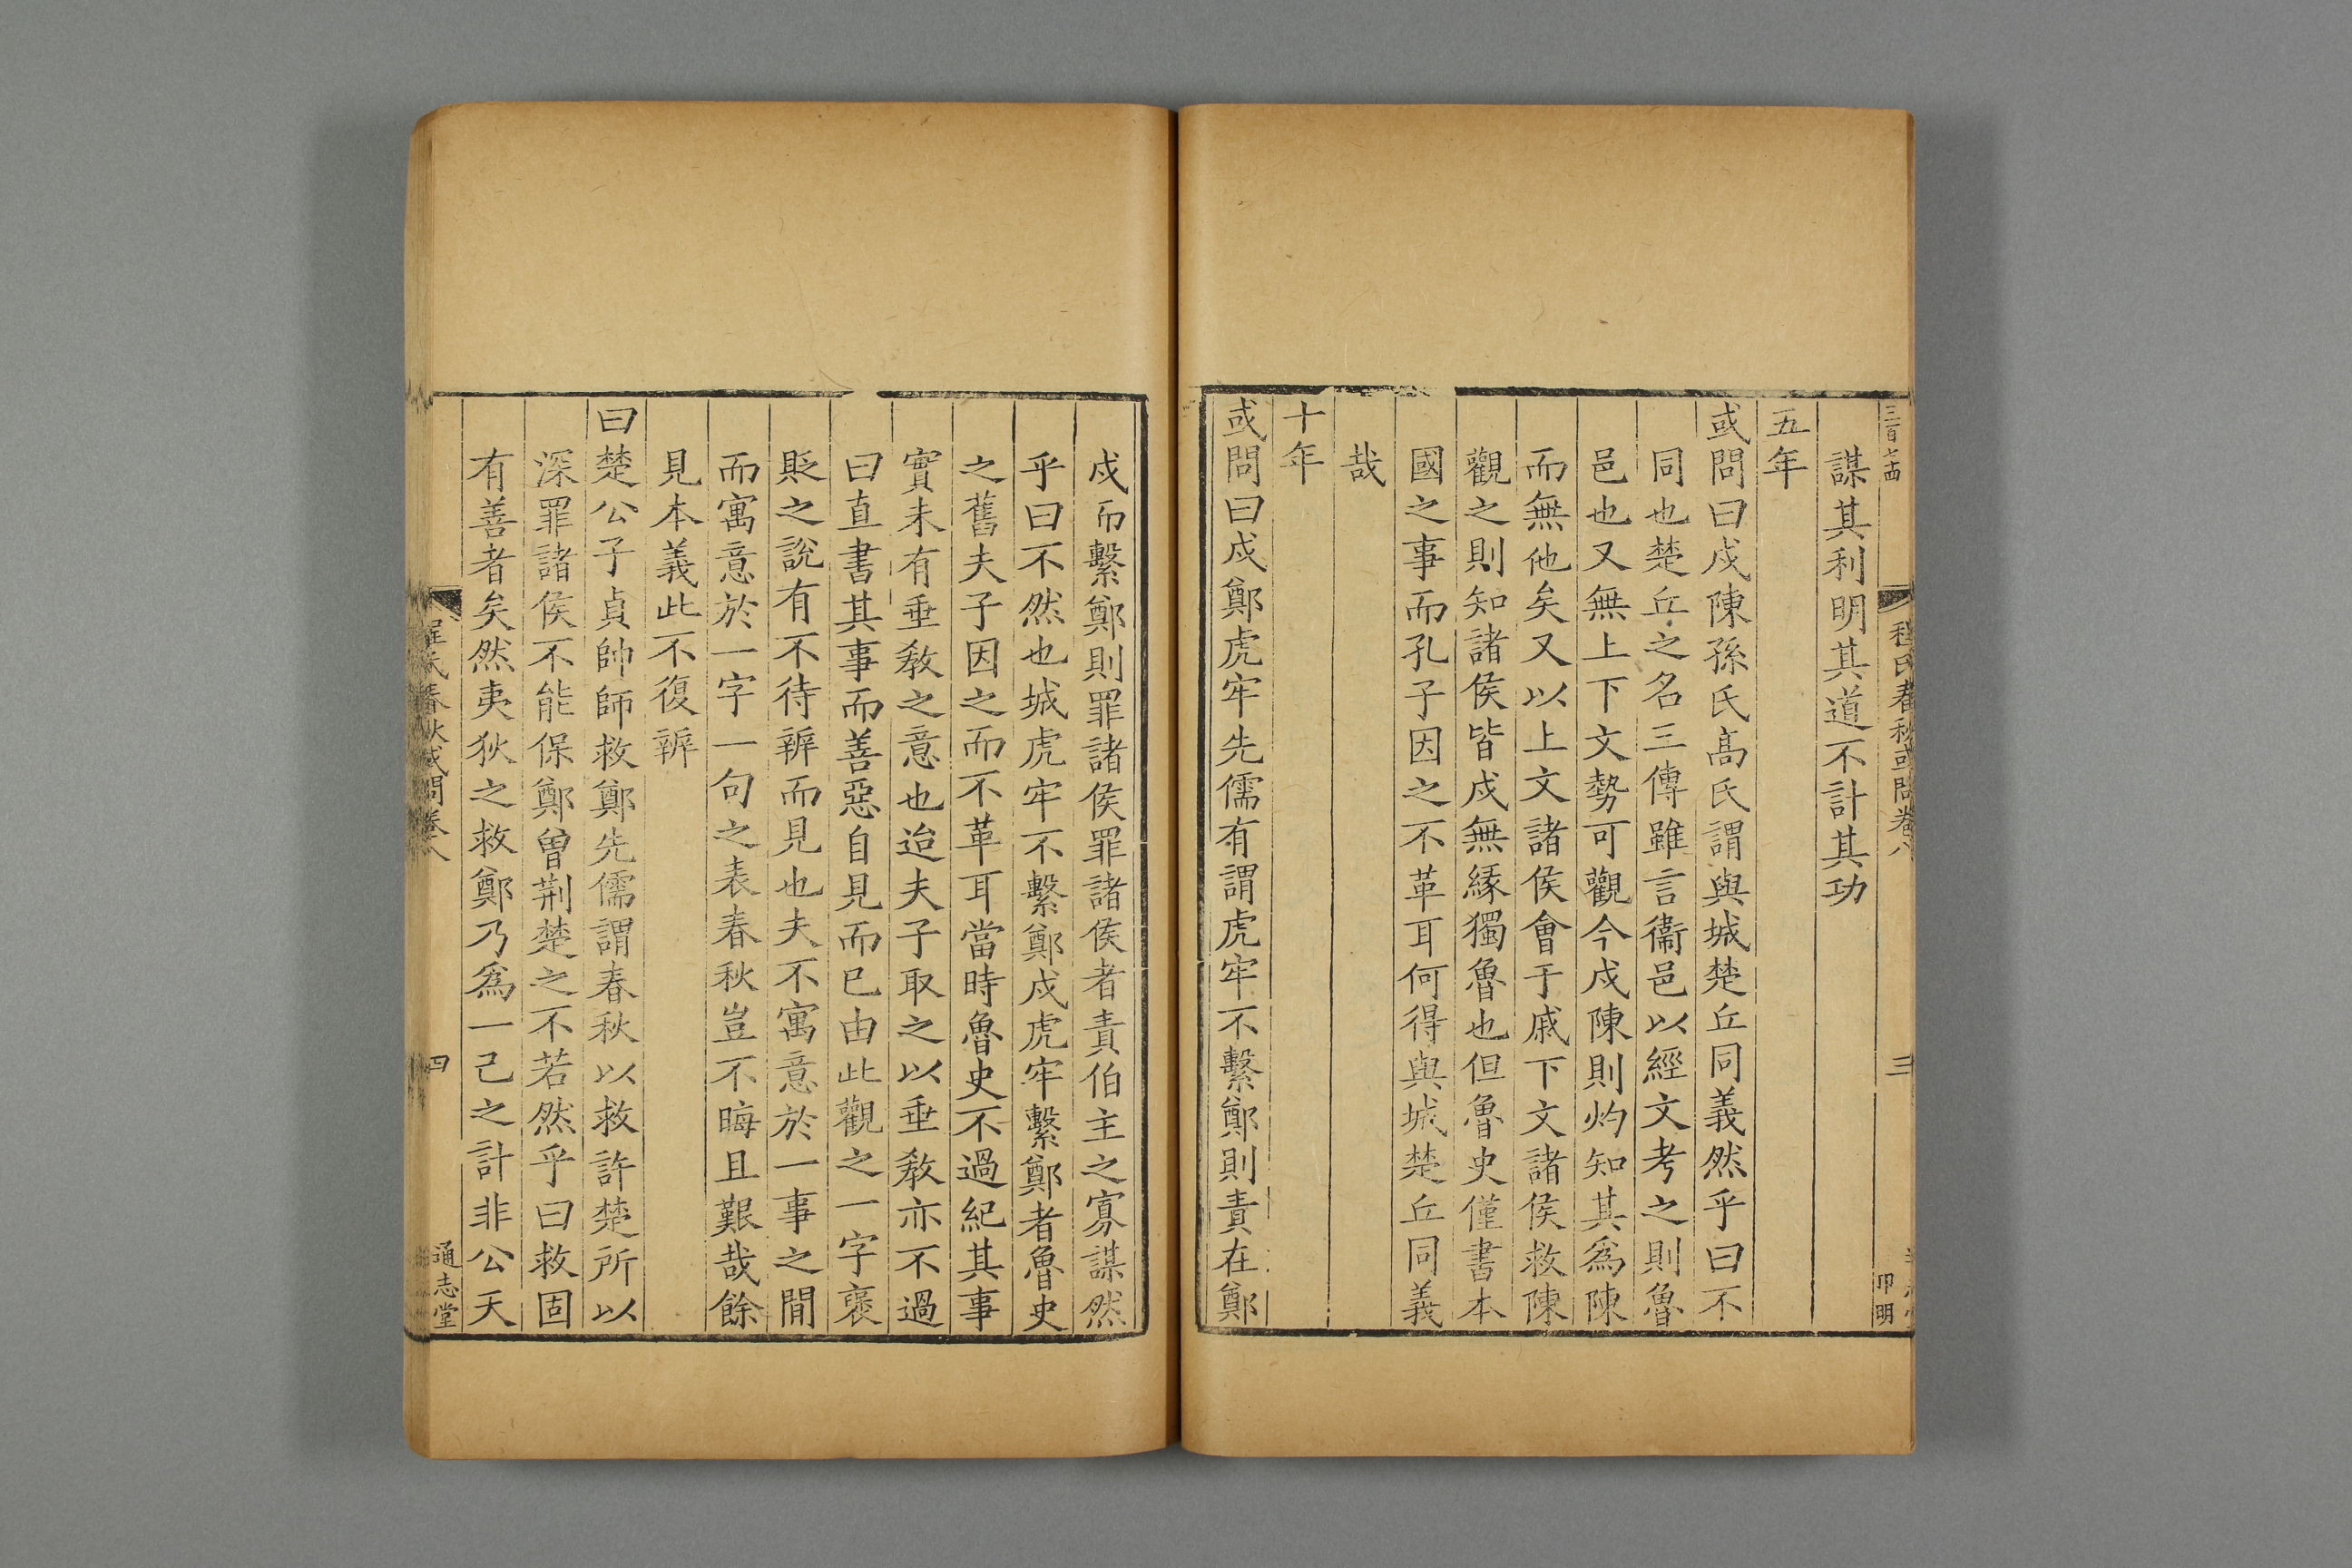 三百七十四
程氏春秋或問卷八
三
印明
謀其利明其道不計其功
五年
或問曰戍陳孫氏高氏謂與城楚丘同義然乎曰不
同也楚丘之名三傳雖言衞邑以經文考之則魯
邑也又無上下文勢可觀今戍陳則灼知其爲陳
而無他矣又以上文諸侯會于戚下文諸侯救陳
觀之則知諸侯皆戍無縁獨魯也但魯史僅書本
國之事而孔子因之不革耳何得與城楚丘同義
哉
十年
或問曰戍鄭虎牢先儒有謂虎牢不繫鄭則責在鄭
戍而繫鄭則罪諸侯罪諸侯者責伯主之寡謀然
乎曰不然也城虎牢不繫鄭戍虎牢繫鄭者魯史
之舊夫子因之而不革耳當時魯史不過紀其事
實未有垂敎之意也迨夫子取之以垂敎亦不過
曰直書其事而善惡自見而已由此觀之一字褒
貶之說有不待辨而見也夫不寓意於一事之間
而寓意於一字一句之表春秋豈不晦且艱哉餘
見本義此不復辨
曰楚公子貞帥師救鄭先儒謂春秋以救許楚所以
深罪諸侯不能保鄭曾荆楚之不若然乎曰救固
有善者矣然夷狄之救鄭乃爲一己之計非公天
程氏春秋或問卷八
四
通志堂